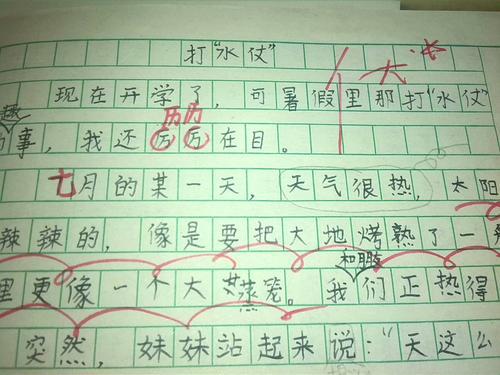 打“水仗”
现在开学了，可暑假里那打“水仗”
趣
的事，我还历历在目。
七月的某一天，天气很热，太阳
辣辣的，像是要把大地烤熟了一
里更像一个大蒸笼。我和
们正热得
突然，妹妹站起来说：“天这么